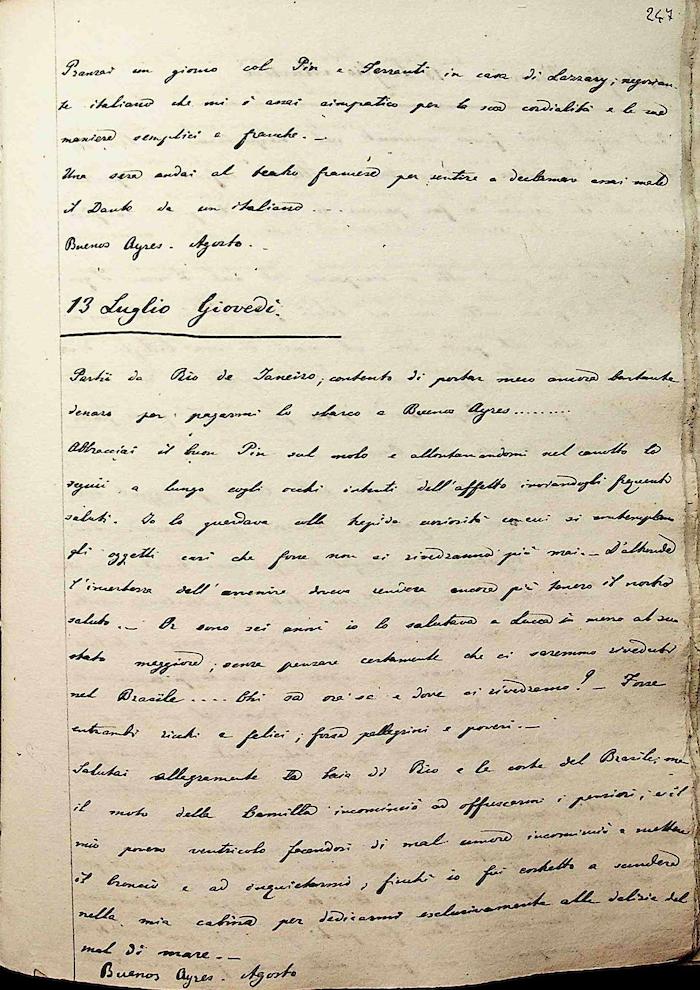 247
Pranzai un giorno col Pin e Ferranti in casa di Lazzary, negozian-
te italiano che mi è assai simpatico per la sua cordialità e le sue
maniere semplici e franche. _
Una sera andai al teatro francese per sentire a declamare assai male
il Dante da un italiano . . .
Buenos Ayres. Agosto. _
13 Luglio Giovedì.
Partii da Rio de Janeiro, contento di portar meco ancora bastante
denaro per pagarmi lo sbarco a Buenos Ayres ........
Abbracciai il buon Pin sul molo e allontanandomi nel canotto lo
seguii a lungo cogli occhi intenti dell'affetto inviandogli frequenti
saluti. Io lo guardava colla trepida curiosità con cui si contemplano
gli oggetti cari che forse non si rivedranno più mai. _ D'altronde
l'incertezza dell'avvenire doveva rendere ancora più tenero il nostro
saluto. _ Or sono sei anni io lo salutava a Lucca in mezzo al suo
stato maggiore, senza pensare certamente che ci saremmo riveduti
nel Brasile .... Chi sa ora se e dove ci rivedremo? _ Forse
entrambi ricchi e felici, forse pellegrini e poveri. _
Salutai allegramente la baia di Rio e le coste del Brasile, ma
il moto della Camilla incominciò ad offuscarmi i pensieri, e il
mio povero ventricolo facendosi di mal umore incominciò a mettere
il broncio e ad inquietarmi, finchè io fui costretto a scendere
nella mia cabina per dedicarmi esclusivamente alle delizie del
mal di mare. _
Buenos Ayres. Agosto